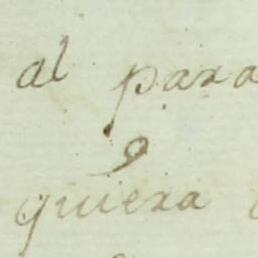 al para
quiera